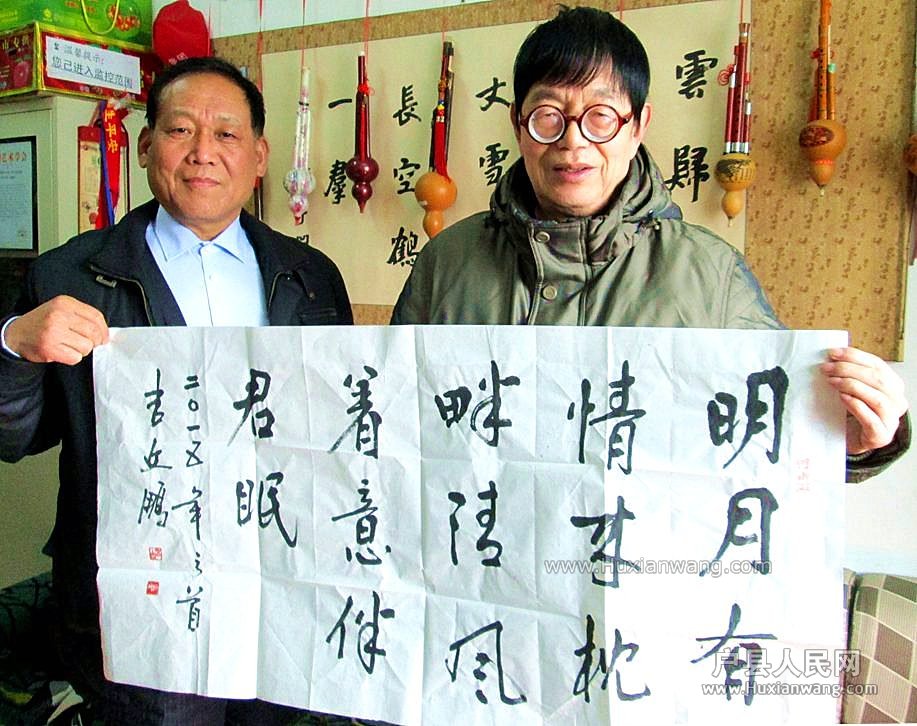 温馨提示:
您已进入监控范围
艺术学会
雲歸
丈雪
長空鶴
一羣
明月有
情来枕
畔清风
着意伴
君眠
二〇一五年之首
鹏
www.Huxianwang.com
户县人民网
www.Huxianwang.com